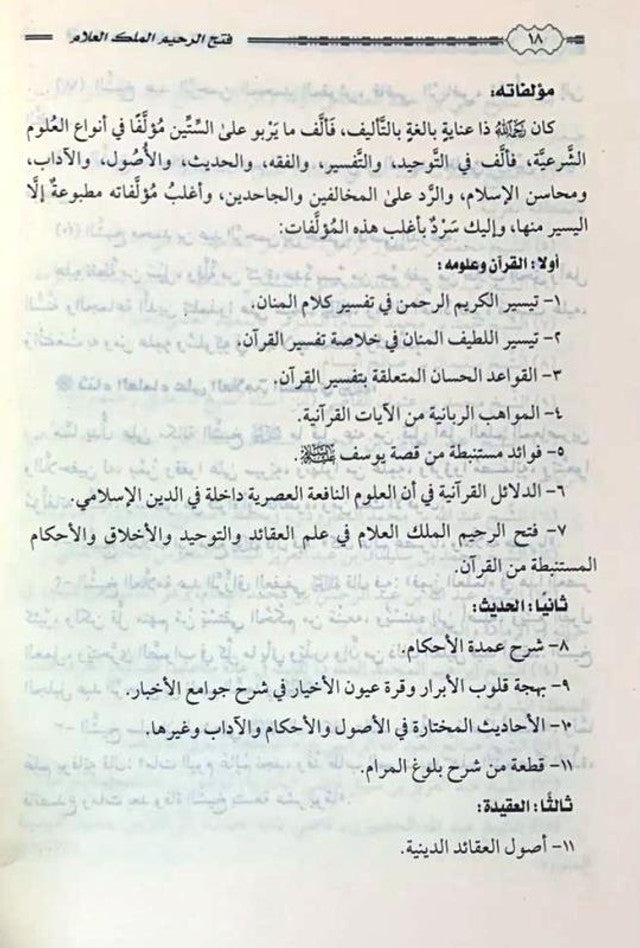 ١٨ فتح الرحيم الملك العلام
مؤلفاته:
كان رَحِمَهُ ٱللَّهُ ذا عنايةٍ بالغةٍ بالتَّأليف، فَألَّف ما يَرْبو على السِّتِّين مُؤلَّفًا في أنواع العُلوم
الشَّرعيَّة، فألَّف في التَّوحيد، والتَّفسير، والفقه، والحديث، والأُصُول، والآداب،
ومحاسن الإسلام، والرَّد على المخالفين والجاحدين، وأغلبُ مُؤلَّفاته مطبوعةٌ إلَّا
اليسير منها، وإليك سَرْدٌ بأغلب هذه المُؤلَّفات:
أولا: القرآن وعلومه:
١- تيسير الكريم الرحمن في تفسير كلام المنان.
٢- تيسير اللطيف المنان في خلاصة تفسير القرآن.
٣- القواعد الحسان المتعلقة بتفسير القرآن.
٤- المواهب الربانية من الآيات القرآنية.
٥- فوائد مستنبطة من قصة يوسف عَلَيْهِ ٱلسَّلَامُ.
٦- الدلائل القرآنية في أن العلوم النافعة العصرية داخلة في الدين الإسلامي.
٧- فتح الرحيم الملك العلام في علم العقائد والتوحيد والأخلاق والأحكام
المستنبطة من القرآن.
ثانيًا: الحديث:
٨- شرح عمدة الأحكام.
٩- بهجة قلوب الأبرار وقرة عيون الأخيار في شرح جوامع الأخبار.
١٠- الأحاديث المختارة في الأصول والأحكام والآداب وغيرها.
١١- قطعة من شرح بلوغ المرام.
ثالثًا: العقيدة:
١١- أصول العقائد الدينية.